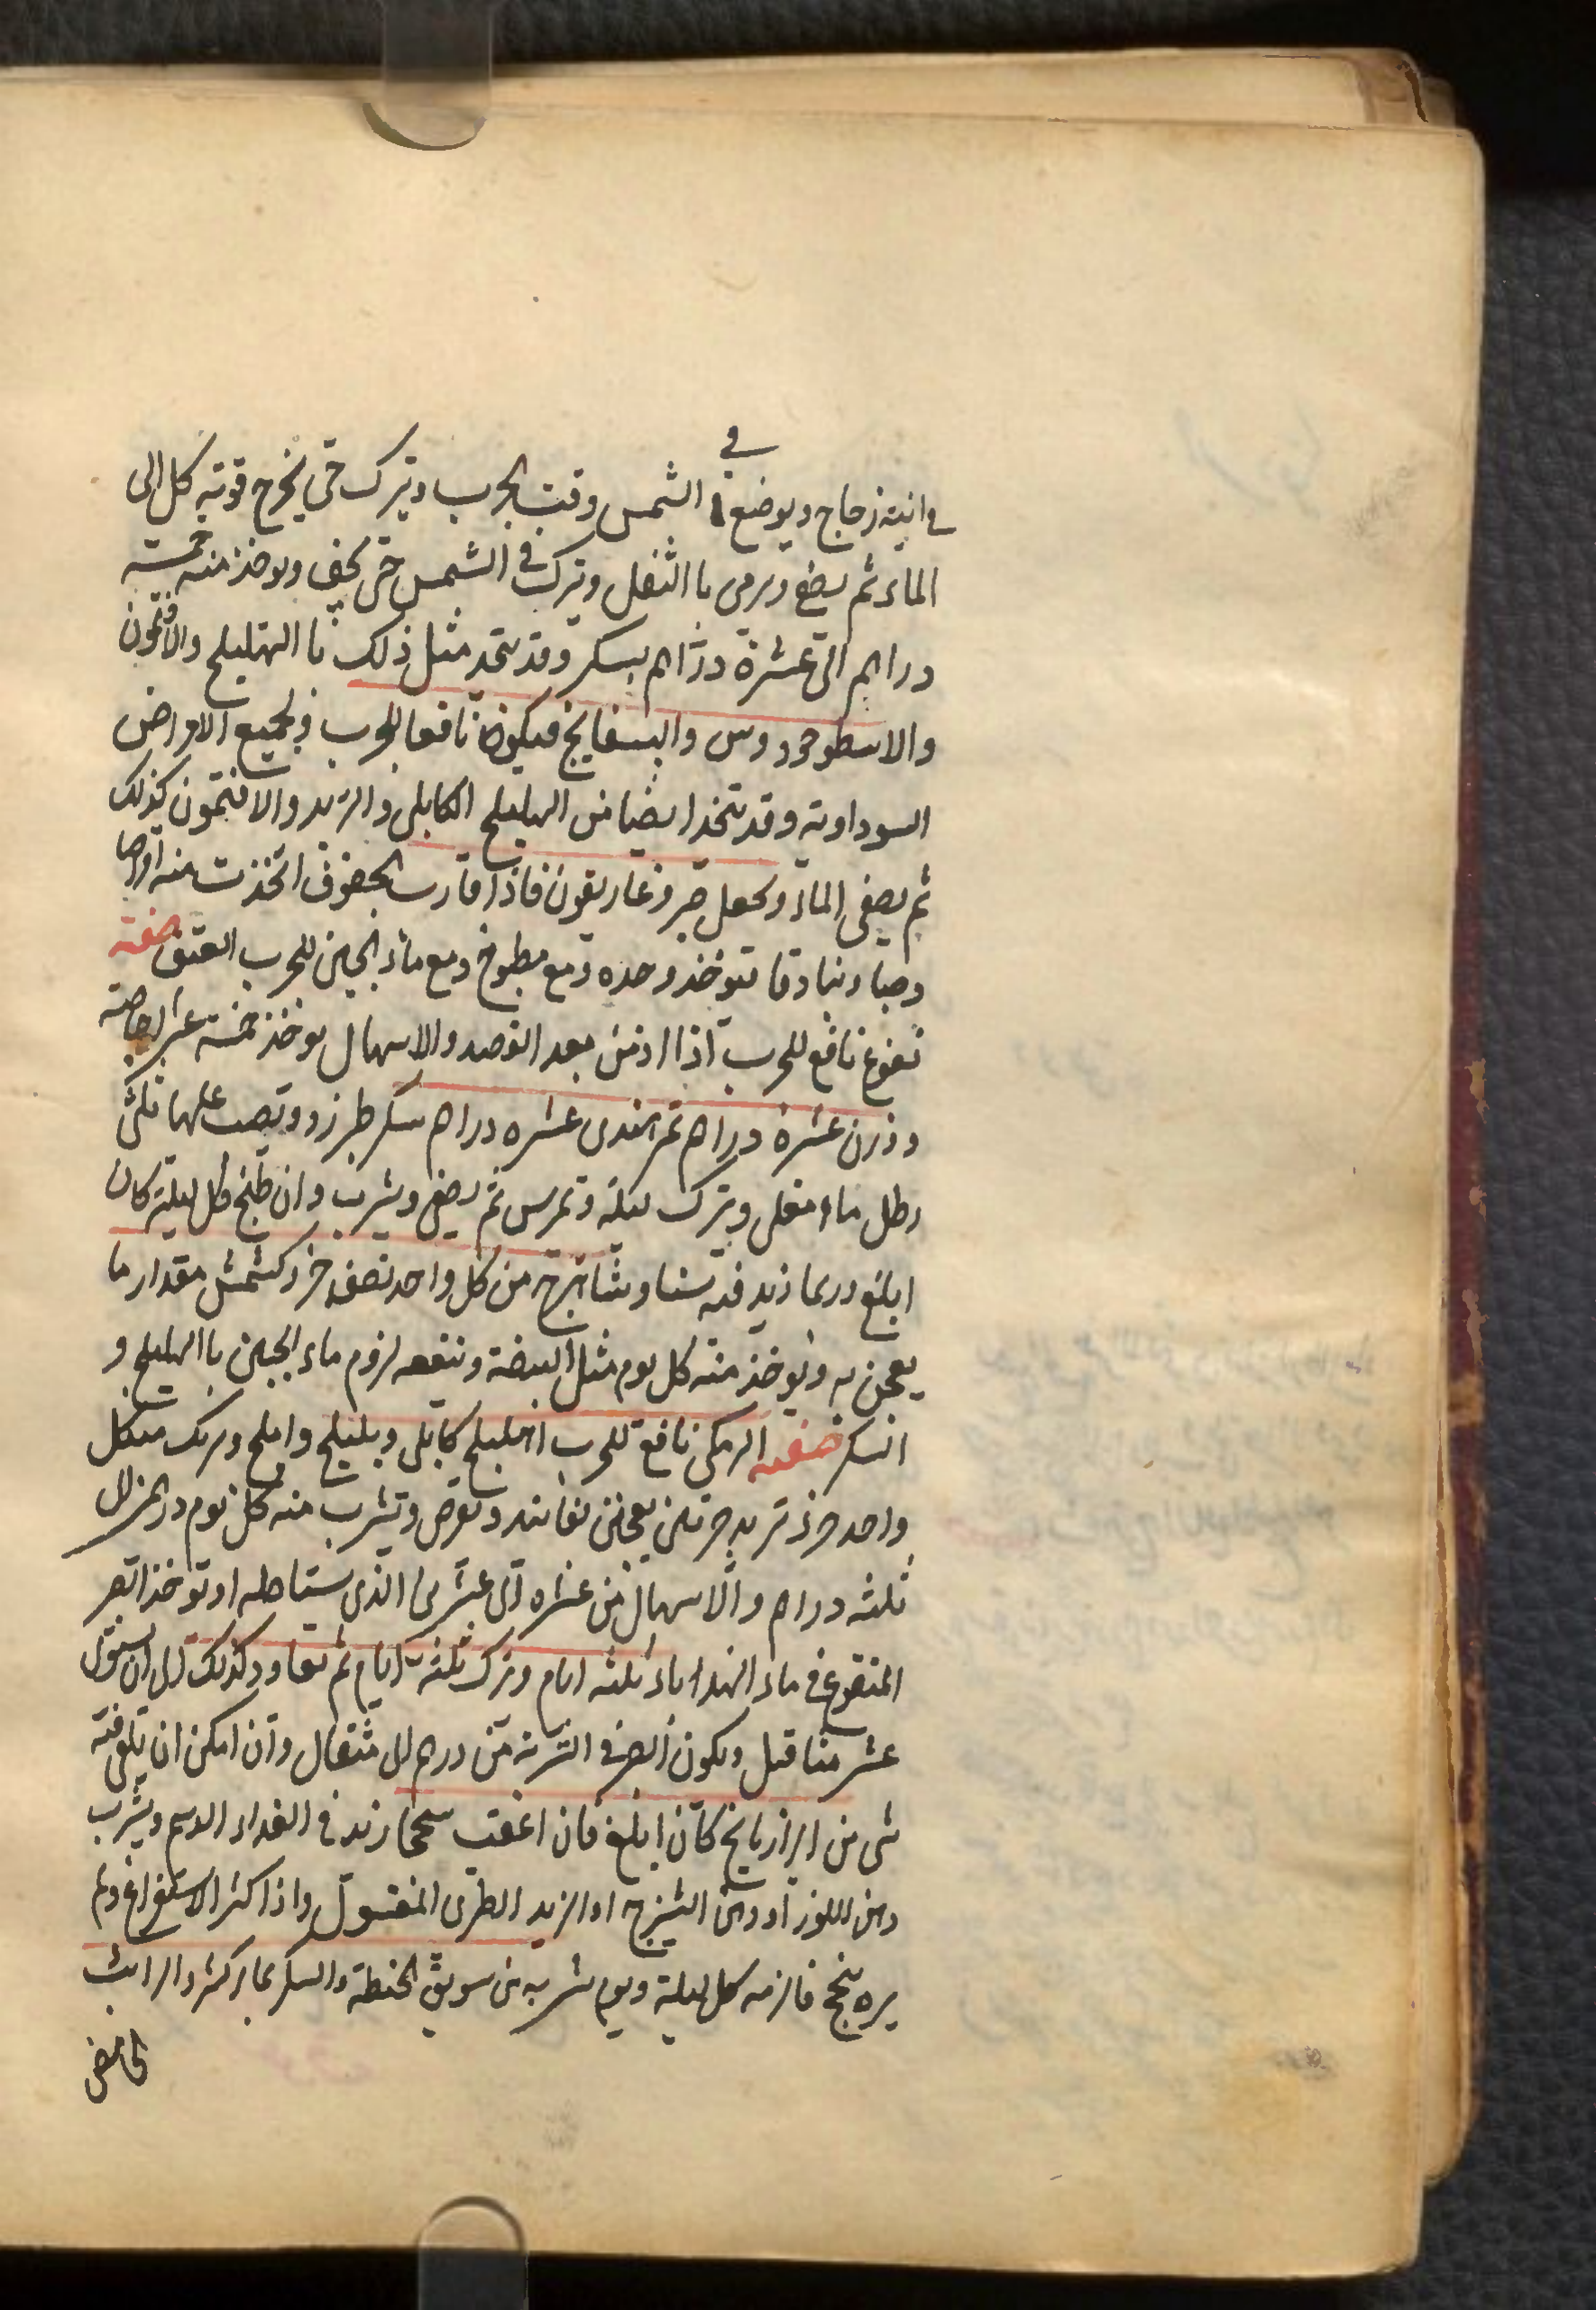 في
في انية زجاج ويوضع الشمس وقت الجرب ويترك حتى يخرج قوته كل الى
الماء ثم يصفى ويرمى با الثفل ويترك في الشمس حتى يجف ويوخذ منه خمسة
دراهم الى عشرة دراهم بسكر وقد يتخذ مثل ذلك با الهليلج والافتمون
والاسطوخودوس والبسفايج فيكون نافعا للجرب ولجميع الامراض
السوداوية وقد يتخذ ايضا من الهليلج الكابلى والتربد والافتمون كذلك
ثم يصفى الماء ويجعل صبر وغاريقون فاذا قارب الجفوف اتخذت منه اقراصا
وحبا وبنادقا فتوخذ وحده ومع مطبوخ ومع ماء الجبن للجرب العتيق صفة
نقوع نافع للجرب اذا ازمن بعد الفصد والاسهال يوخذ خمسة عشر اجاصة
وزن عشرة دراهم تمر هندى عشره دراهم سكر طبرزد ويصب عليها ثلثى
رطل ماء مغلى ويترك ليلة ويمرس ثم يصفى ويشرب وان طبخ كل ليلة كان
ابلغ وربما زيد فيه سنا وشاهترج من كل واحد نصف جزء كشمش مقدار ما
يعجن به ويوخذ منه كل يوم مثل البيضة وينفعه لزوم ماء الجبن با الهليلج و
السكر صفة الرمكى نافع للجرب اهليلج كابلى وبليلج واملج وبرنك من كل
واحد جزء تربد جزئين يعجن بفانيد ويقرص ويشرب منه كل يوم درهم الى
ثلثه دراهم والاسهال من عشره الى عشرين الذى يستاصله ان توخذ الصبر
المنقوع في ماء الهندباء ثلثه ايام ويترك ثلثة ايام ثم يعاود كذلك الى ان يستوفى
عشر مثاقيل ويكون الصبر في الشربة من درهم الى مثقال وان امكن ان يلقى فيه
شى من الرازيانج كان ابلغ فان اعقب سحجا زيد في الغذاء الدسم ويشرب
دهن اللوز او دهن الشيرج او الزبد الطرى المغسول واذا كثر الاستفراغ ولم
يره ينجح فالزمه كل ليلة ويوم شربه من سويق الحنطة والسكر بماء كثير والرائب
الحامض